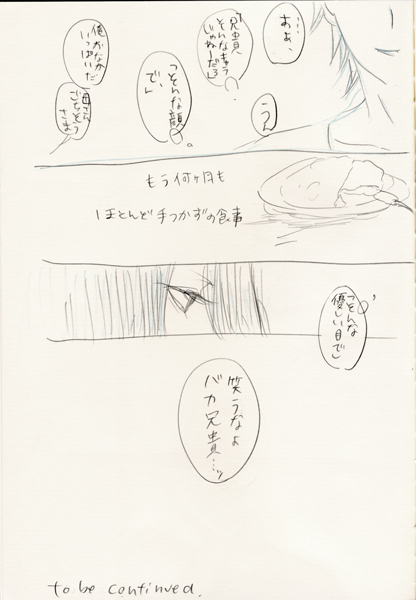 …ああ、
うん
「兄貴
そんなキャラ
じゃねーだろ」
「そんな顔
で、」
俺がなか
いっぱいだ
母さん
ごちそう
さま
もう何ヶ月も
ほとんど手つかずの食事
「そんな
優しい目で」
笑うなよ
バカ兄貴…ッ
to be continued.